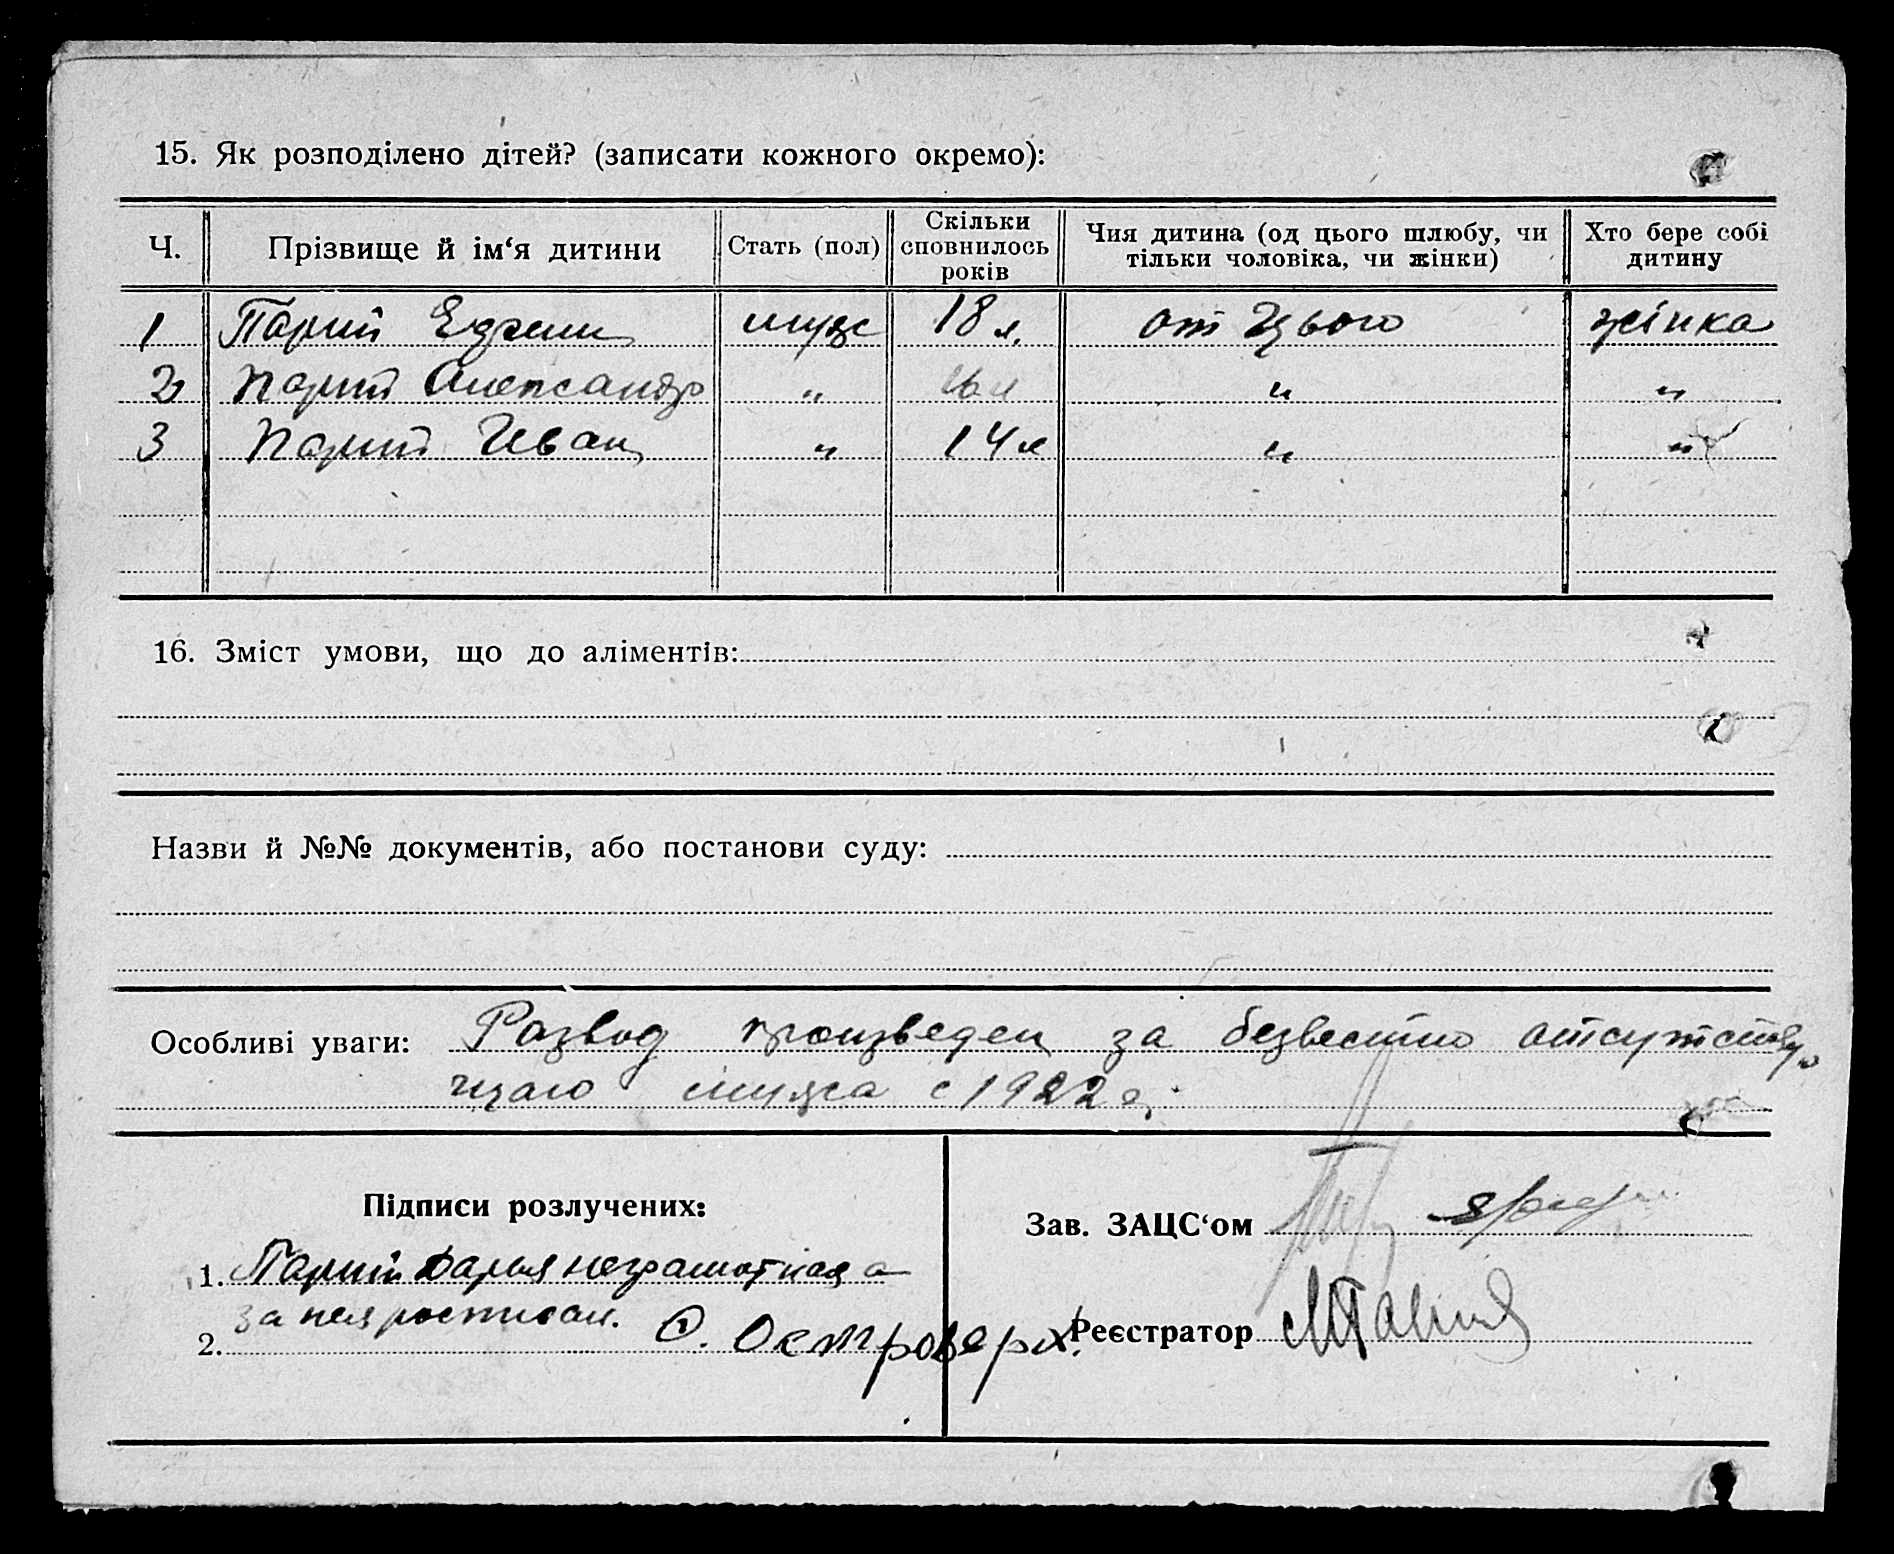 15. Як розподілено дітей? (записати кожного окремо):
Ч. Прізвище й ім‘я дитини Стать (пол) Скільки сповнилось років Чия дитина (од цього шлюбу, чи тільки чоловіка, чи жінки) Хто бере собі дитину
1 Парий муж 18 л. от цього жінка
2 Парий Александр " 16 л " "
3 Парий Иван " 14 л " "
16. Зміст умови, що до аліментів:
Назви й №№ документів, або постанови суду:
Особливі уваги: Развод произведен за безвестно отсутству
щаго мужа с 1922 г.
Підписи розлучених:
Зав. ЗАЦС‘ом
1. Парий Дарья неграмотная а
за нея росписал. О. Островерх.
2.
Реєстратор